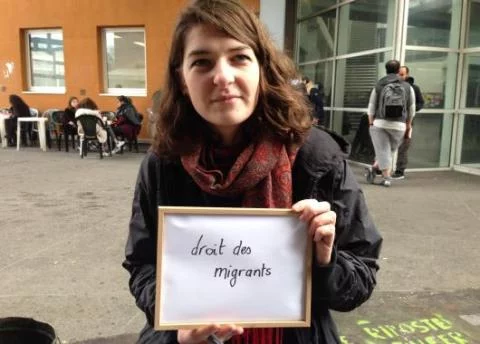 droit des
migrants
RIPOSTE